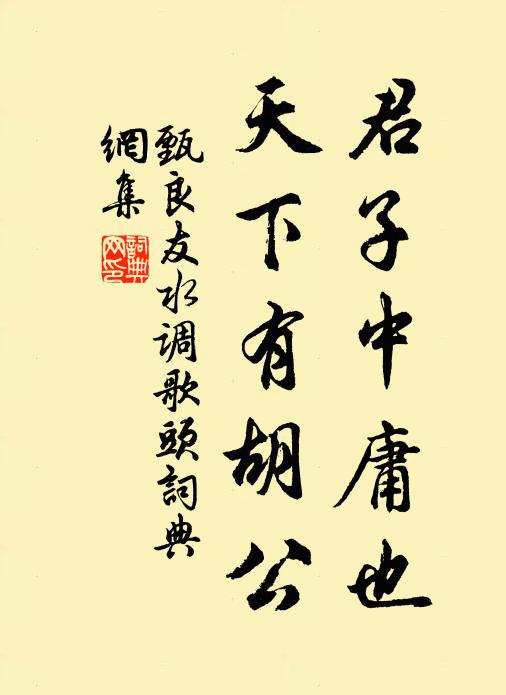 君子中庸也
天下有胡公
甄良友水调歌頭詞典
網集
詞典网印